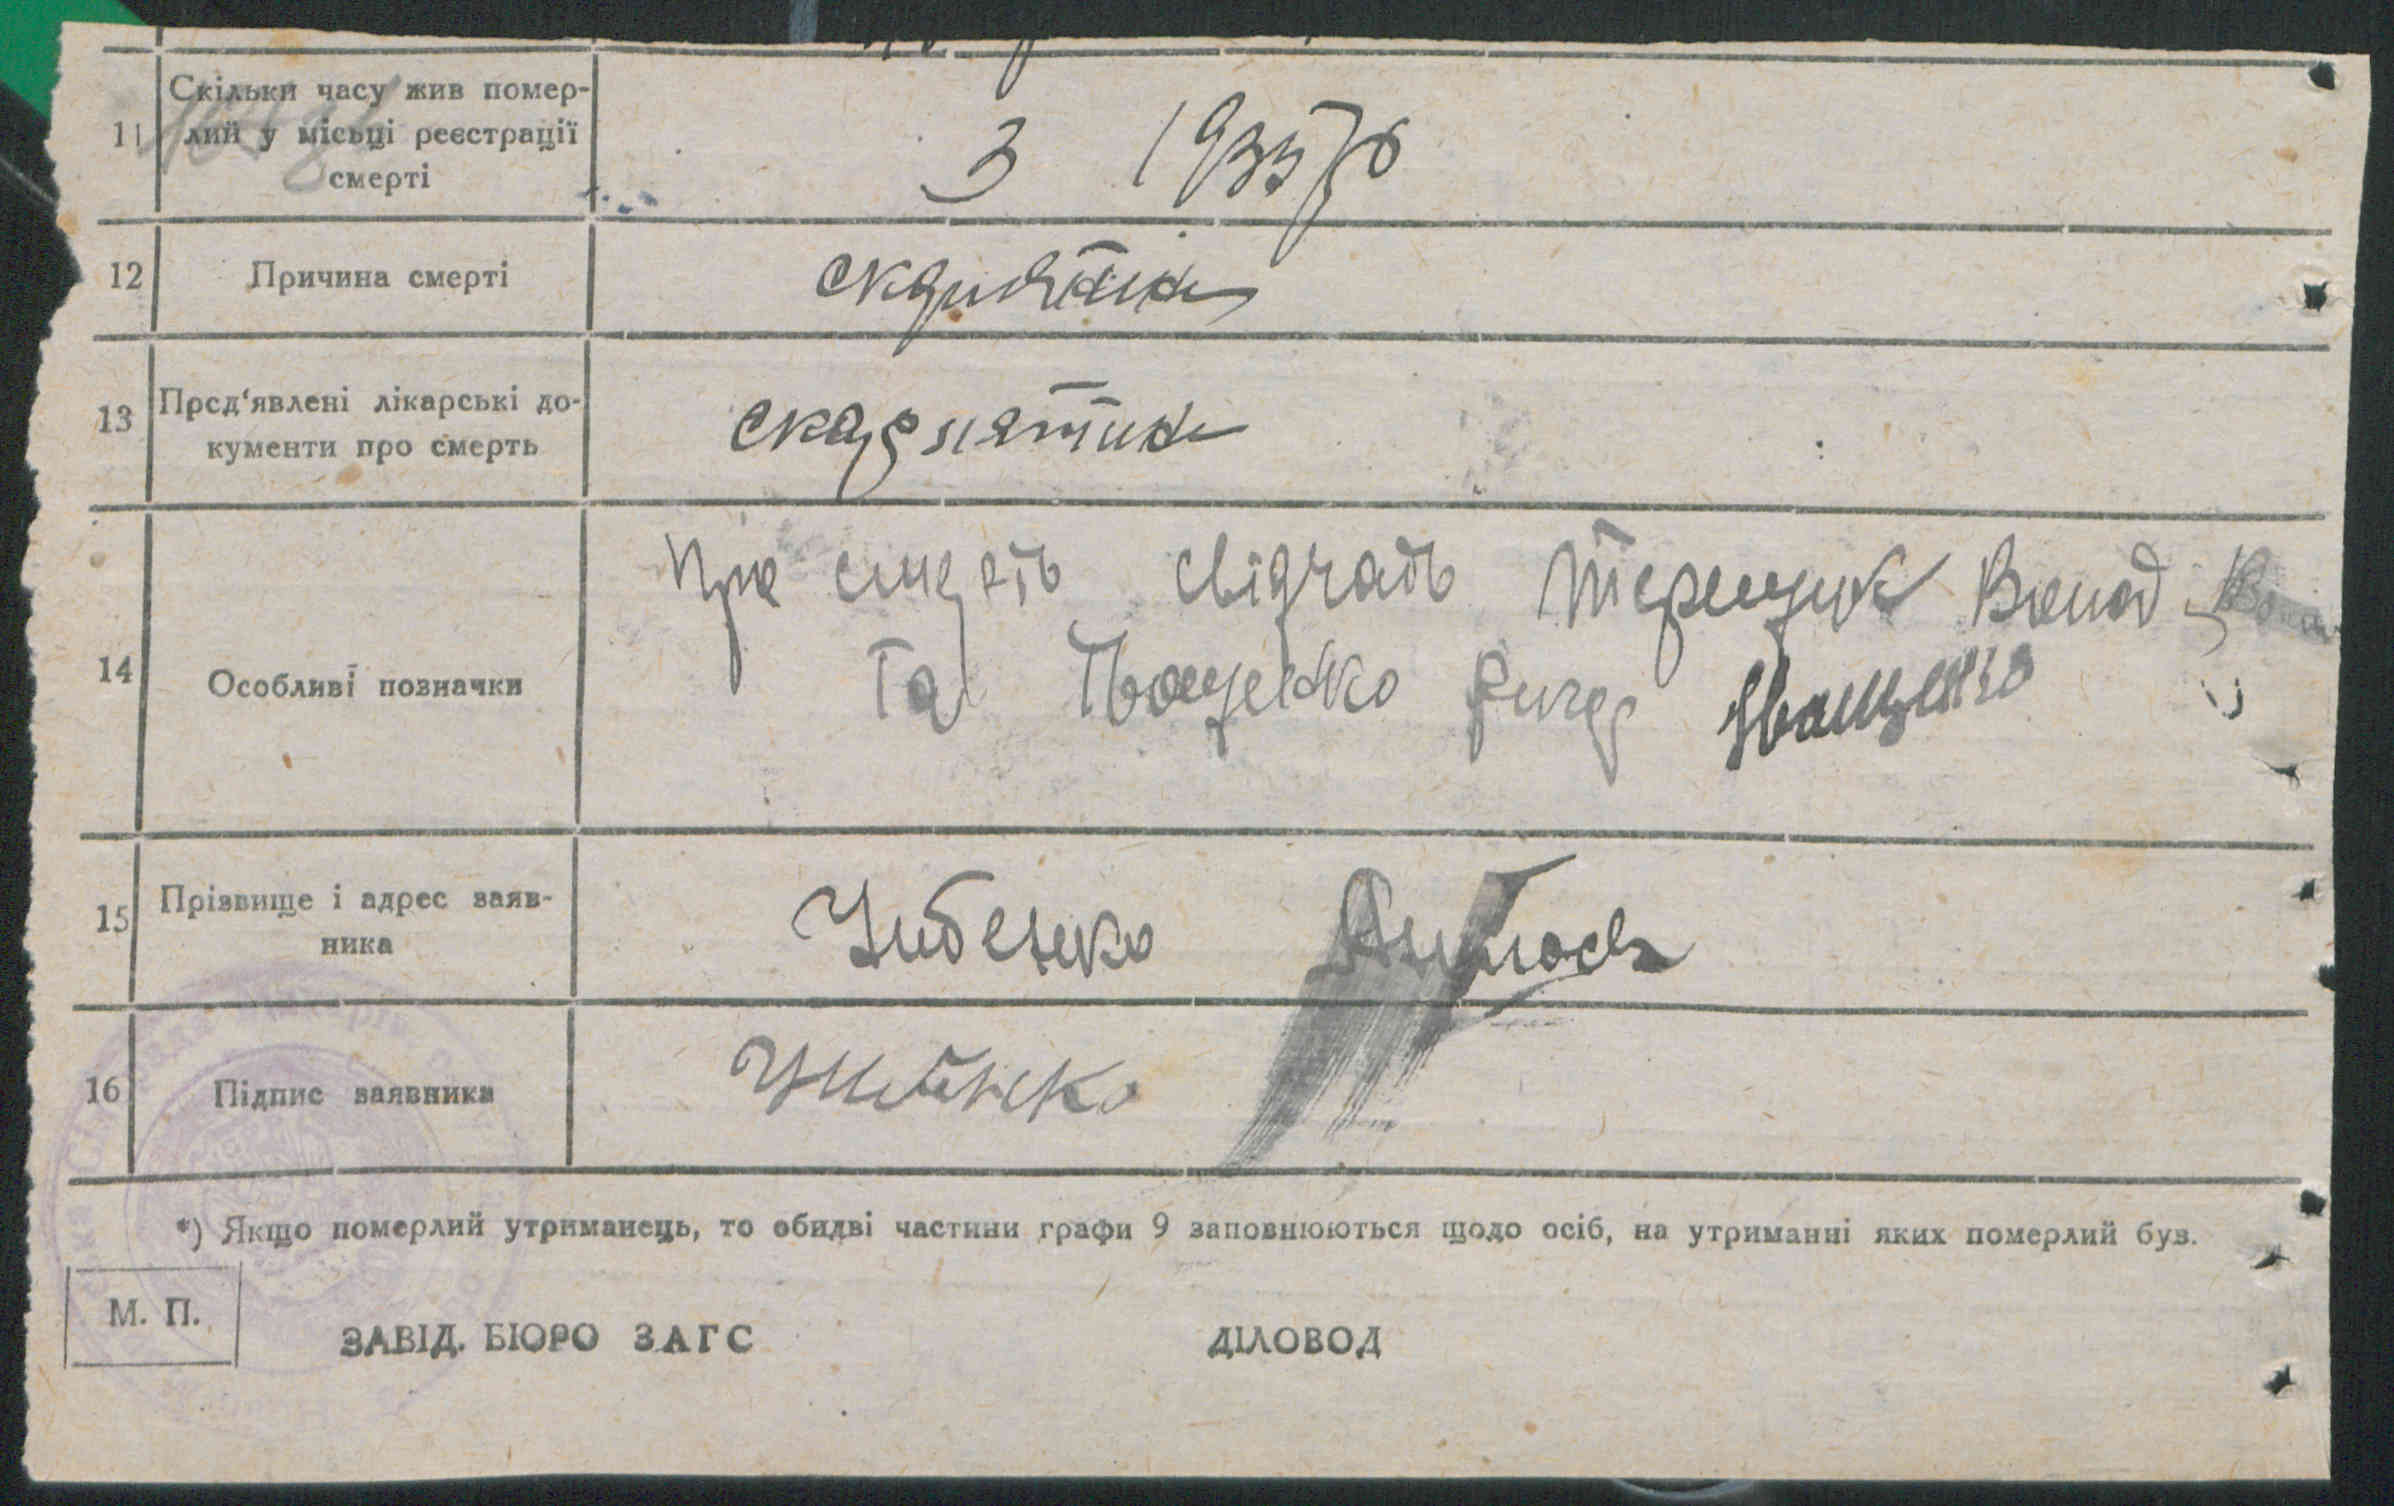 11 Скільки часу жив помер-
лий у місьці реєстрації
смерті
З 1935 р
12 Причина смерті
скарлятина
13 Пред‘явлені лікарські до-
кументи про смерть
скарлятина
14 Особливі позначки
Про смерть свідчать Терещук Волод
та Іващенко Іващенко
15 Прізвище і адрес заяв-
ника
Чибенко
16 Підпис заявника
*) Якщо померлий утриманець, то обидві частини графи 9 заповнюються щодо осіб, на утриманні яких померлий був.
М. П.
ЗАВІД. БЮРО ЗАГС ДІЛОВОД